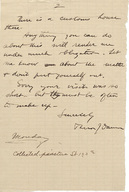 2
There is a customs house
there.
Anything you can do
about this will render me
under much obligation. Let
me know about the matter
& don't put yourself out.
Sorry your visit was so
short. but must be often
to make up.
Sincerely
Monday
Collected